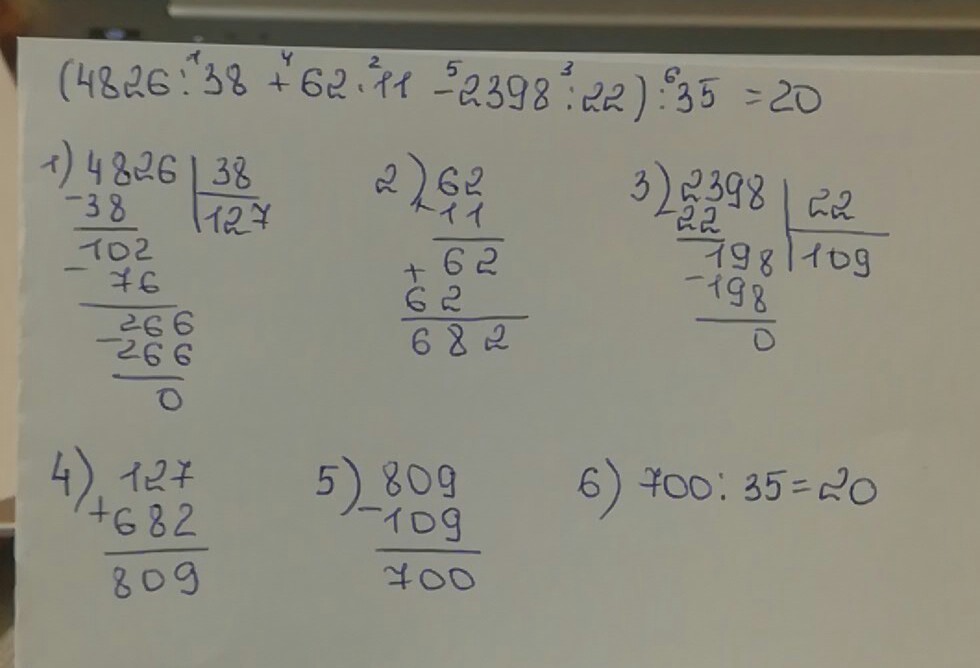 (4826 : 38 + 62 · 11 - 2398 : 22) : 35 = 20
1 4 2 5 3 6
1) 4826 | 38
- 38 | 127
102
- 76
266
- 266
0
2) 62
× 11
62
+
62
682
3) 2398 | 22
- 22 | 109
198
- 198
0
4) 127
+ 682
809
5) 809
- 109
700
6) 700 : 35 = 20